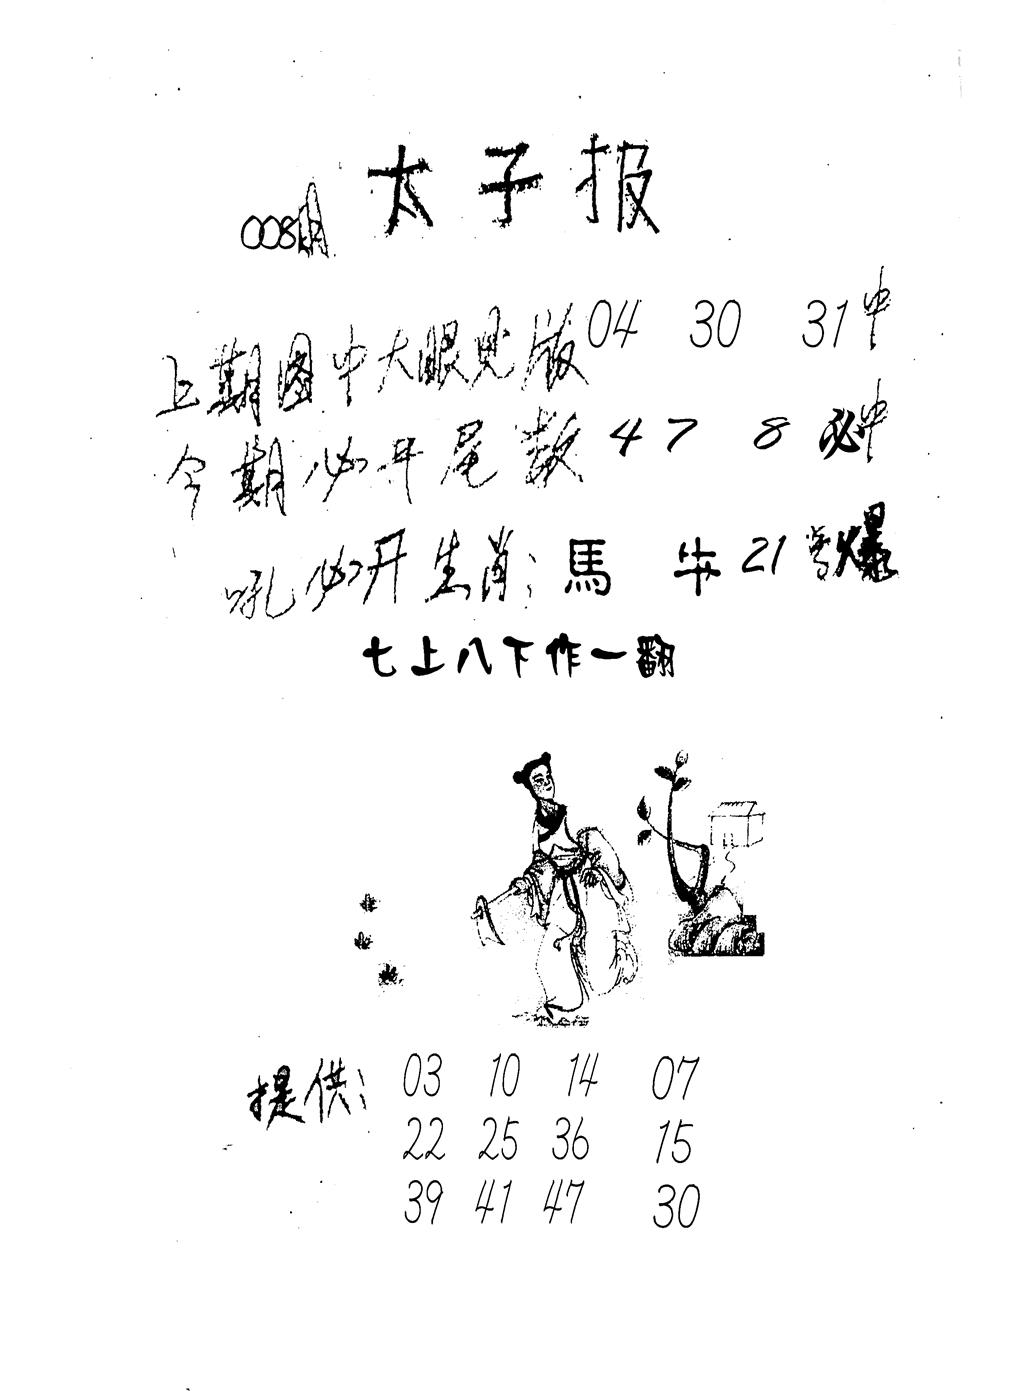 太子报
008期
上期图中大眼见版 04 30 31中
今期必开尾数 4 7 8 必中
吼必开生肖：馬 牛 21 爆
七上八下作一翻
提供： 03 10 14 07
22 25 36 15
39 41 47 30